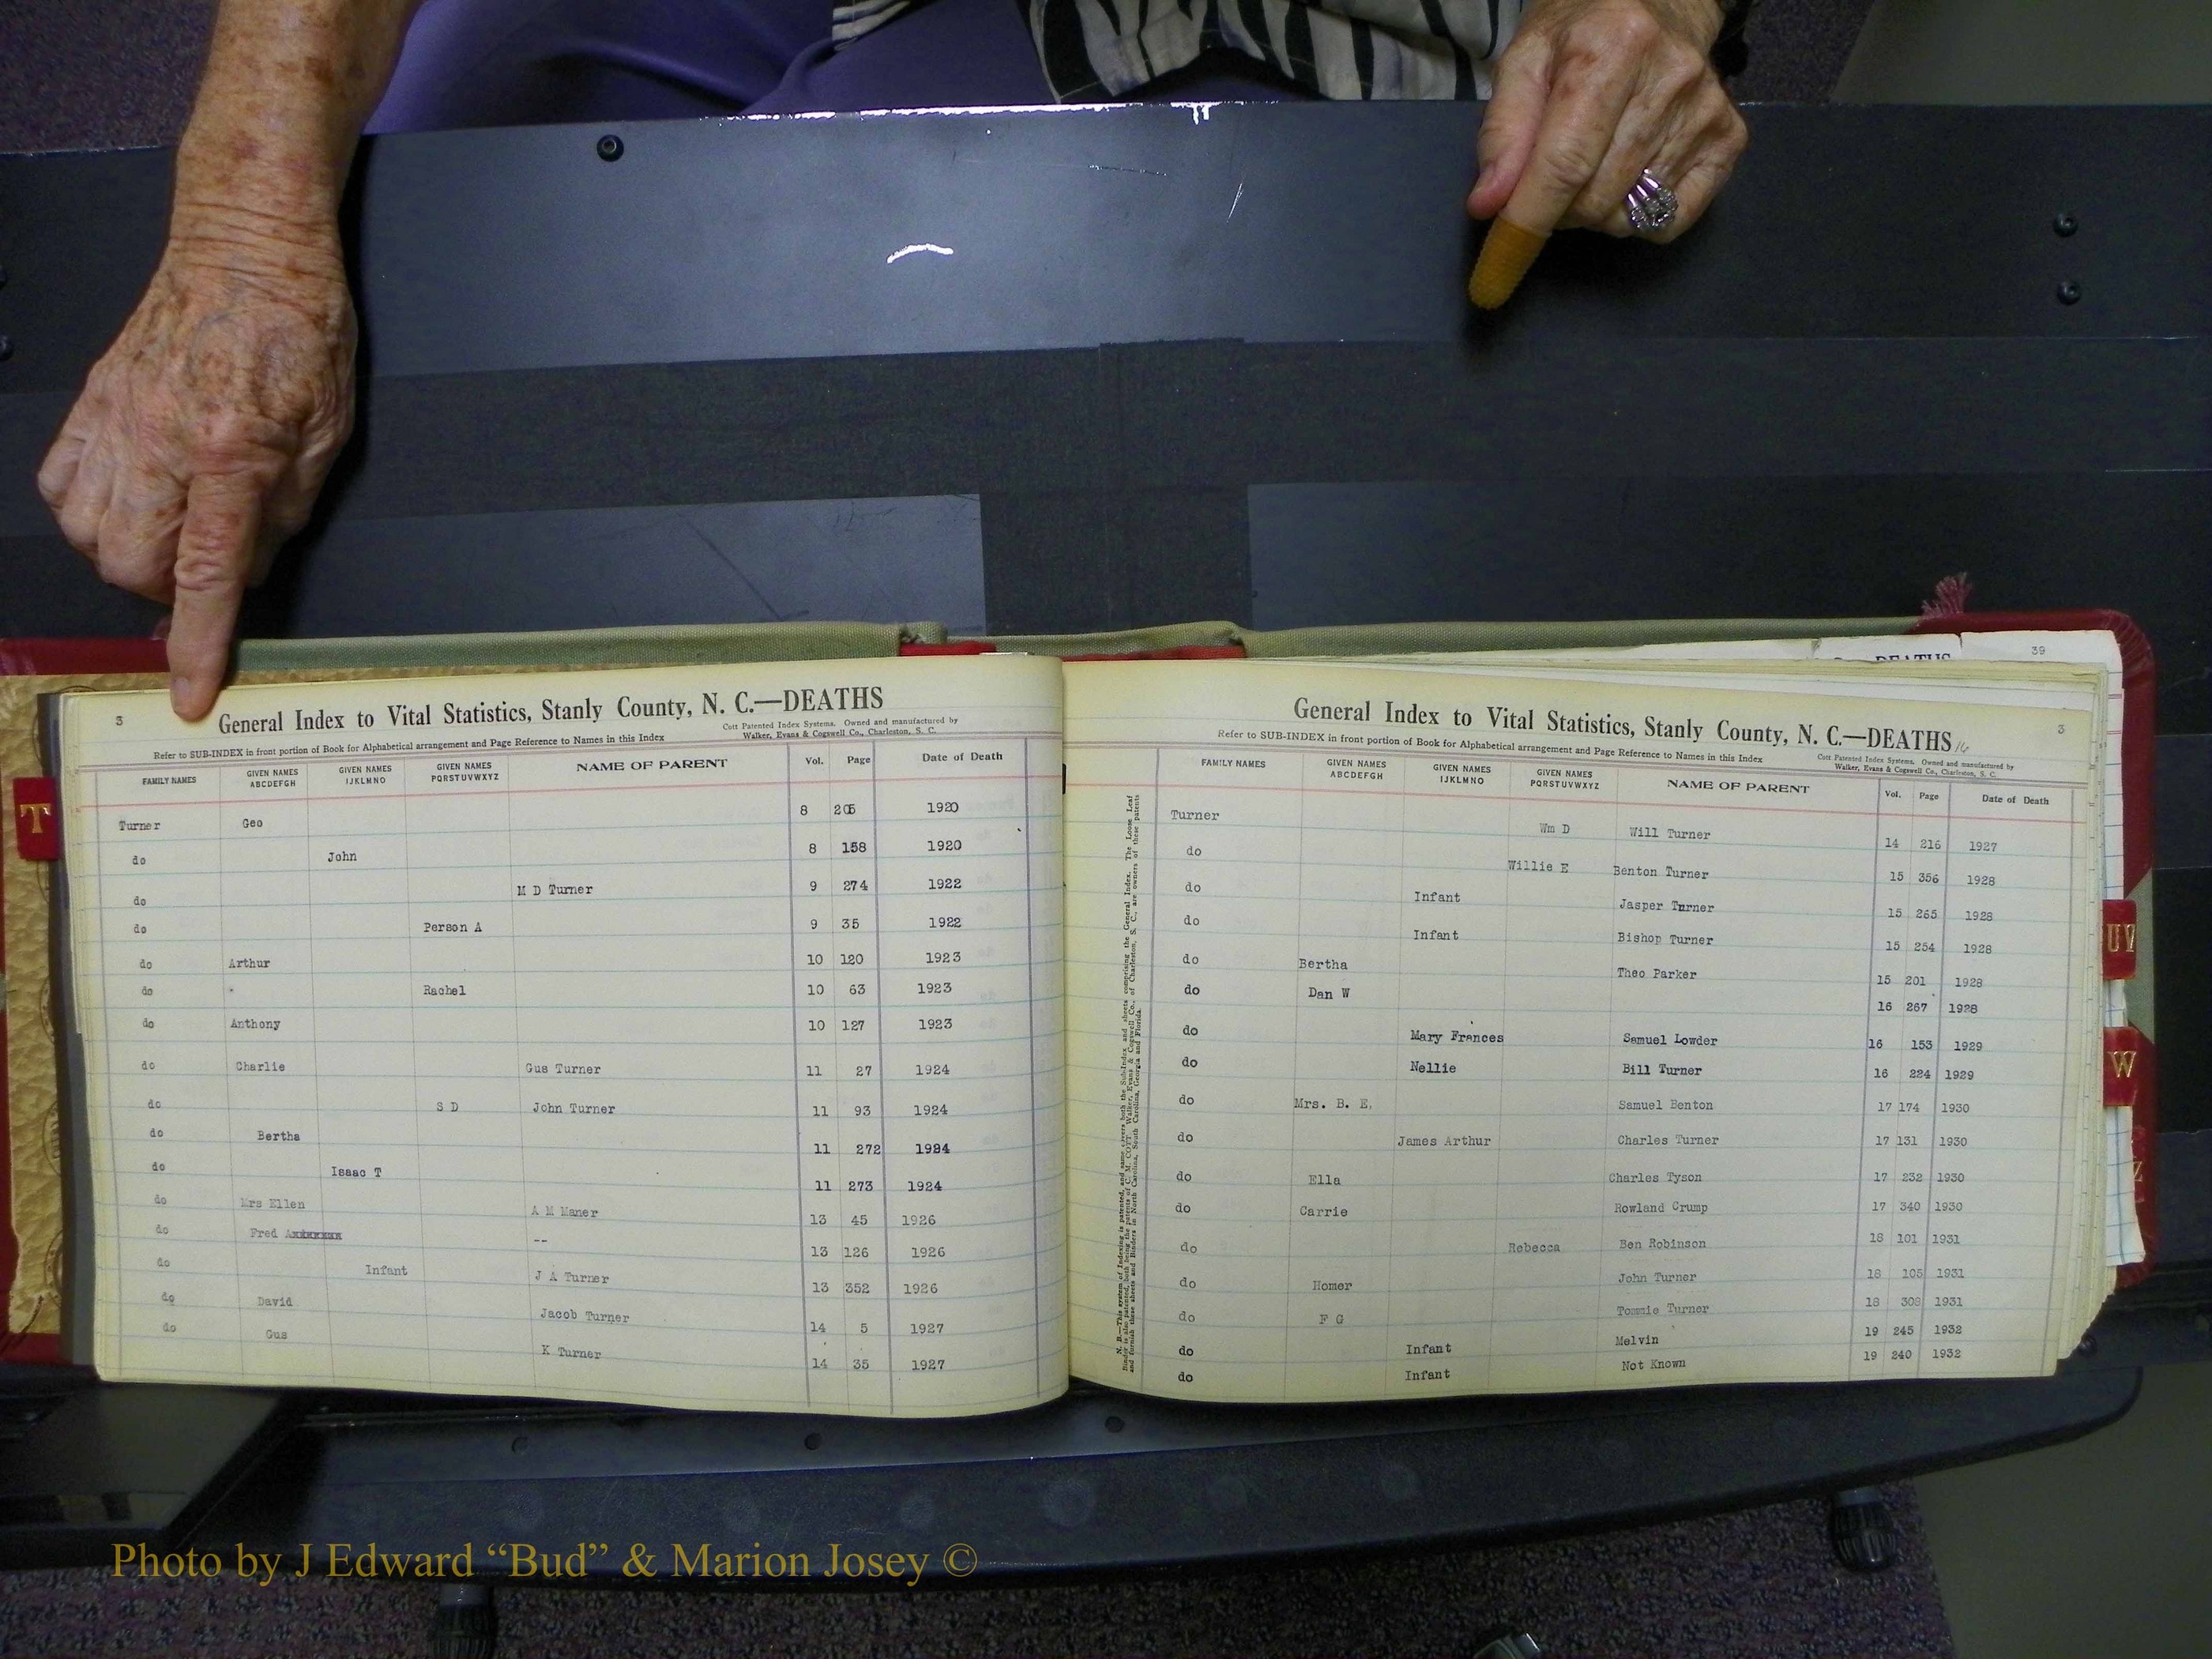 39
DEATHS
3
General Index to Vital Statistics, Stanly County, N. C.—DEATHS
Cott Patented Index Systems. Owned and manufactured by
Walker, Evans & Cogswell Co., Charleston, S. C.
Refer to SUB-INDEX in front portion of Book for Alphabetical arrangement and Page Reference to Names in this Index
FAMILY NAMES GIVEN NAMES ABCDEFGH GIVEN NAMES IJKLMNO GIVEN NAMES PQRSTUVWXYZ NAME OF PARENT Vol. Page Date of Death
Turner Geo 8 205 1920
do John 8 158 1920
do M D Turner 9 274 1922
do Person A 9 35 1922
do Arthur 10 120 1923
do Rachel 10 63 1923
do Anthony 10 127 1923
do Charlie Gus Turner 11 27 1924
do S D John Turner 11 93 1924
do Bertha 11 272 1924
do Isaac T 11 273 1924
do Mrs Ellen A M Maner 13 45 1926
do Fred A -- 13 126 1926
do Infant J A Turner 13 352 1926
do David Jacob Turner 14 5 1927
do Gus K Turner 14 35 1927
T
General Index to Vital Statistics, Stanly County, N. C.—DEATHS 16
3
Refer to SUB-INDEX in front portion of Book for Alphabetical arrangement and Page Reference to Names in this Index
Cott Patented Index Systems. Owned and manufactured by
Walker, Evans & Cogswell Co., Charleston, S. C.
FAMILY NAMES GIVEN NAMES ABCDEFGH GIVEN NAMES IJKLMNO GIVEN NAMES PQRSTUVWXYZ NAME OF PARENT Vol. Page Date of Death
Turner Wm D Will Turner 14 216 1927
do Willie E Benton Turner 15 356 1928
do Infant Jasper Turner 15 265 1928
do Infant Bishop Turner 15 254 1928
do Bertha Theo Parker 15 201 1928
do Dan W 16 267 1928
do Mary Frances Samuel Lowder 16 153 1929
do Nellie Bill Turner 16 224 1929
do Mrs. B. E. Samuel Benton 17 174 1930
do James Arthur Charles Turner 17 131 1930
do Ella Charles Tyson 17 232 1930
do Carrie Rowland Crump 17 340 1930
do Rebecca Ben Robinson 18 101 1931
do Homer John Turner 18 105 1931
do F G Tommie Turner 18 308 1931
do Infant Melvin 19 245 1932
do Infant Not Known 19 240 1932
N. B.—This system of Indexing is patented, and same covers both the Sub-Index and sheets comprising the General Index. The Loose Leaf
Binder is also patented, both being the patents of C. M. COTT. Walker, Evans & Cogswell Co., of Charleston, S. C., are owners of these patents
and furnish these sheets and Binders in North Carolina, South Carolina, Georgia and Florida.
UV
W
Z
Photo by J Edward “Bud” & Marion Josey ©